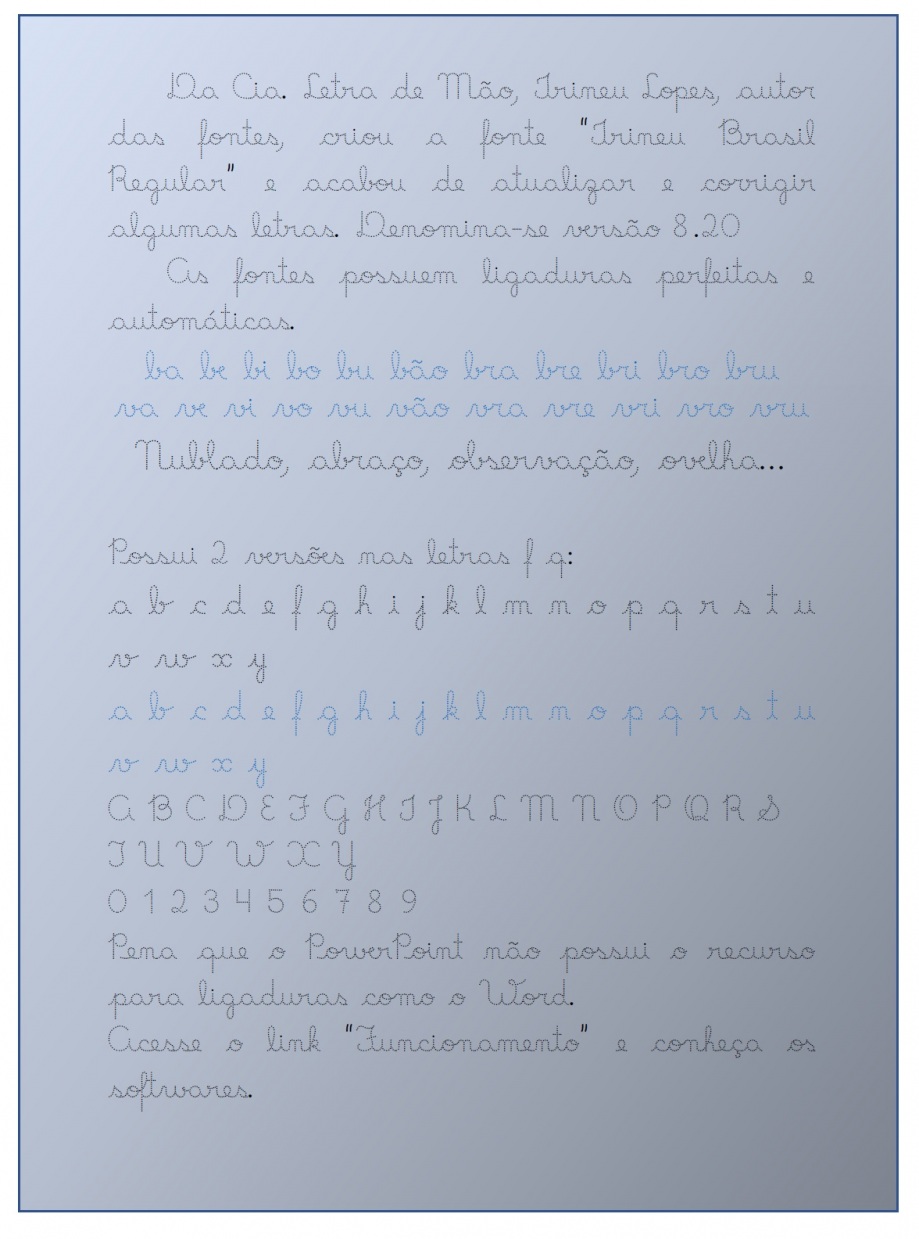 Da Cia. Letra de Mão, Irineu Lopes, autor
das fontes, criou a fonte "Irineu Brasil
Regular" e acabou de atualizar e corrigir
algumas letras. Denomina-se versão 8.20
As fontes possuem ligaduras perfeitas e
automáticas.
ba be bi bo bu bão bra bre bri bro bru
va ve vi vo vu vão vra vre vri vro vru
Nublado, abraço, observação, ovelha...
Possui 2 versões nas letras f q:
a b c d e f g h i j k l m n o p q r s t u
v w x y
a b c d e f g h i j k l m n o p q r s t u
v w x y
A B C D E F G H I J K L M N O P Q R S
T U V W X Y
0 1 2 3 4 5 6 7 8 9
Pena que o PowerPoint não possui o recurso
para ligaduras como o Word.
Acesse o link "Funcionamento" e conheça os
softwares.